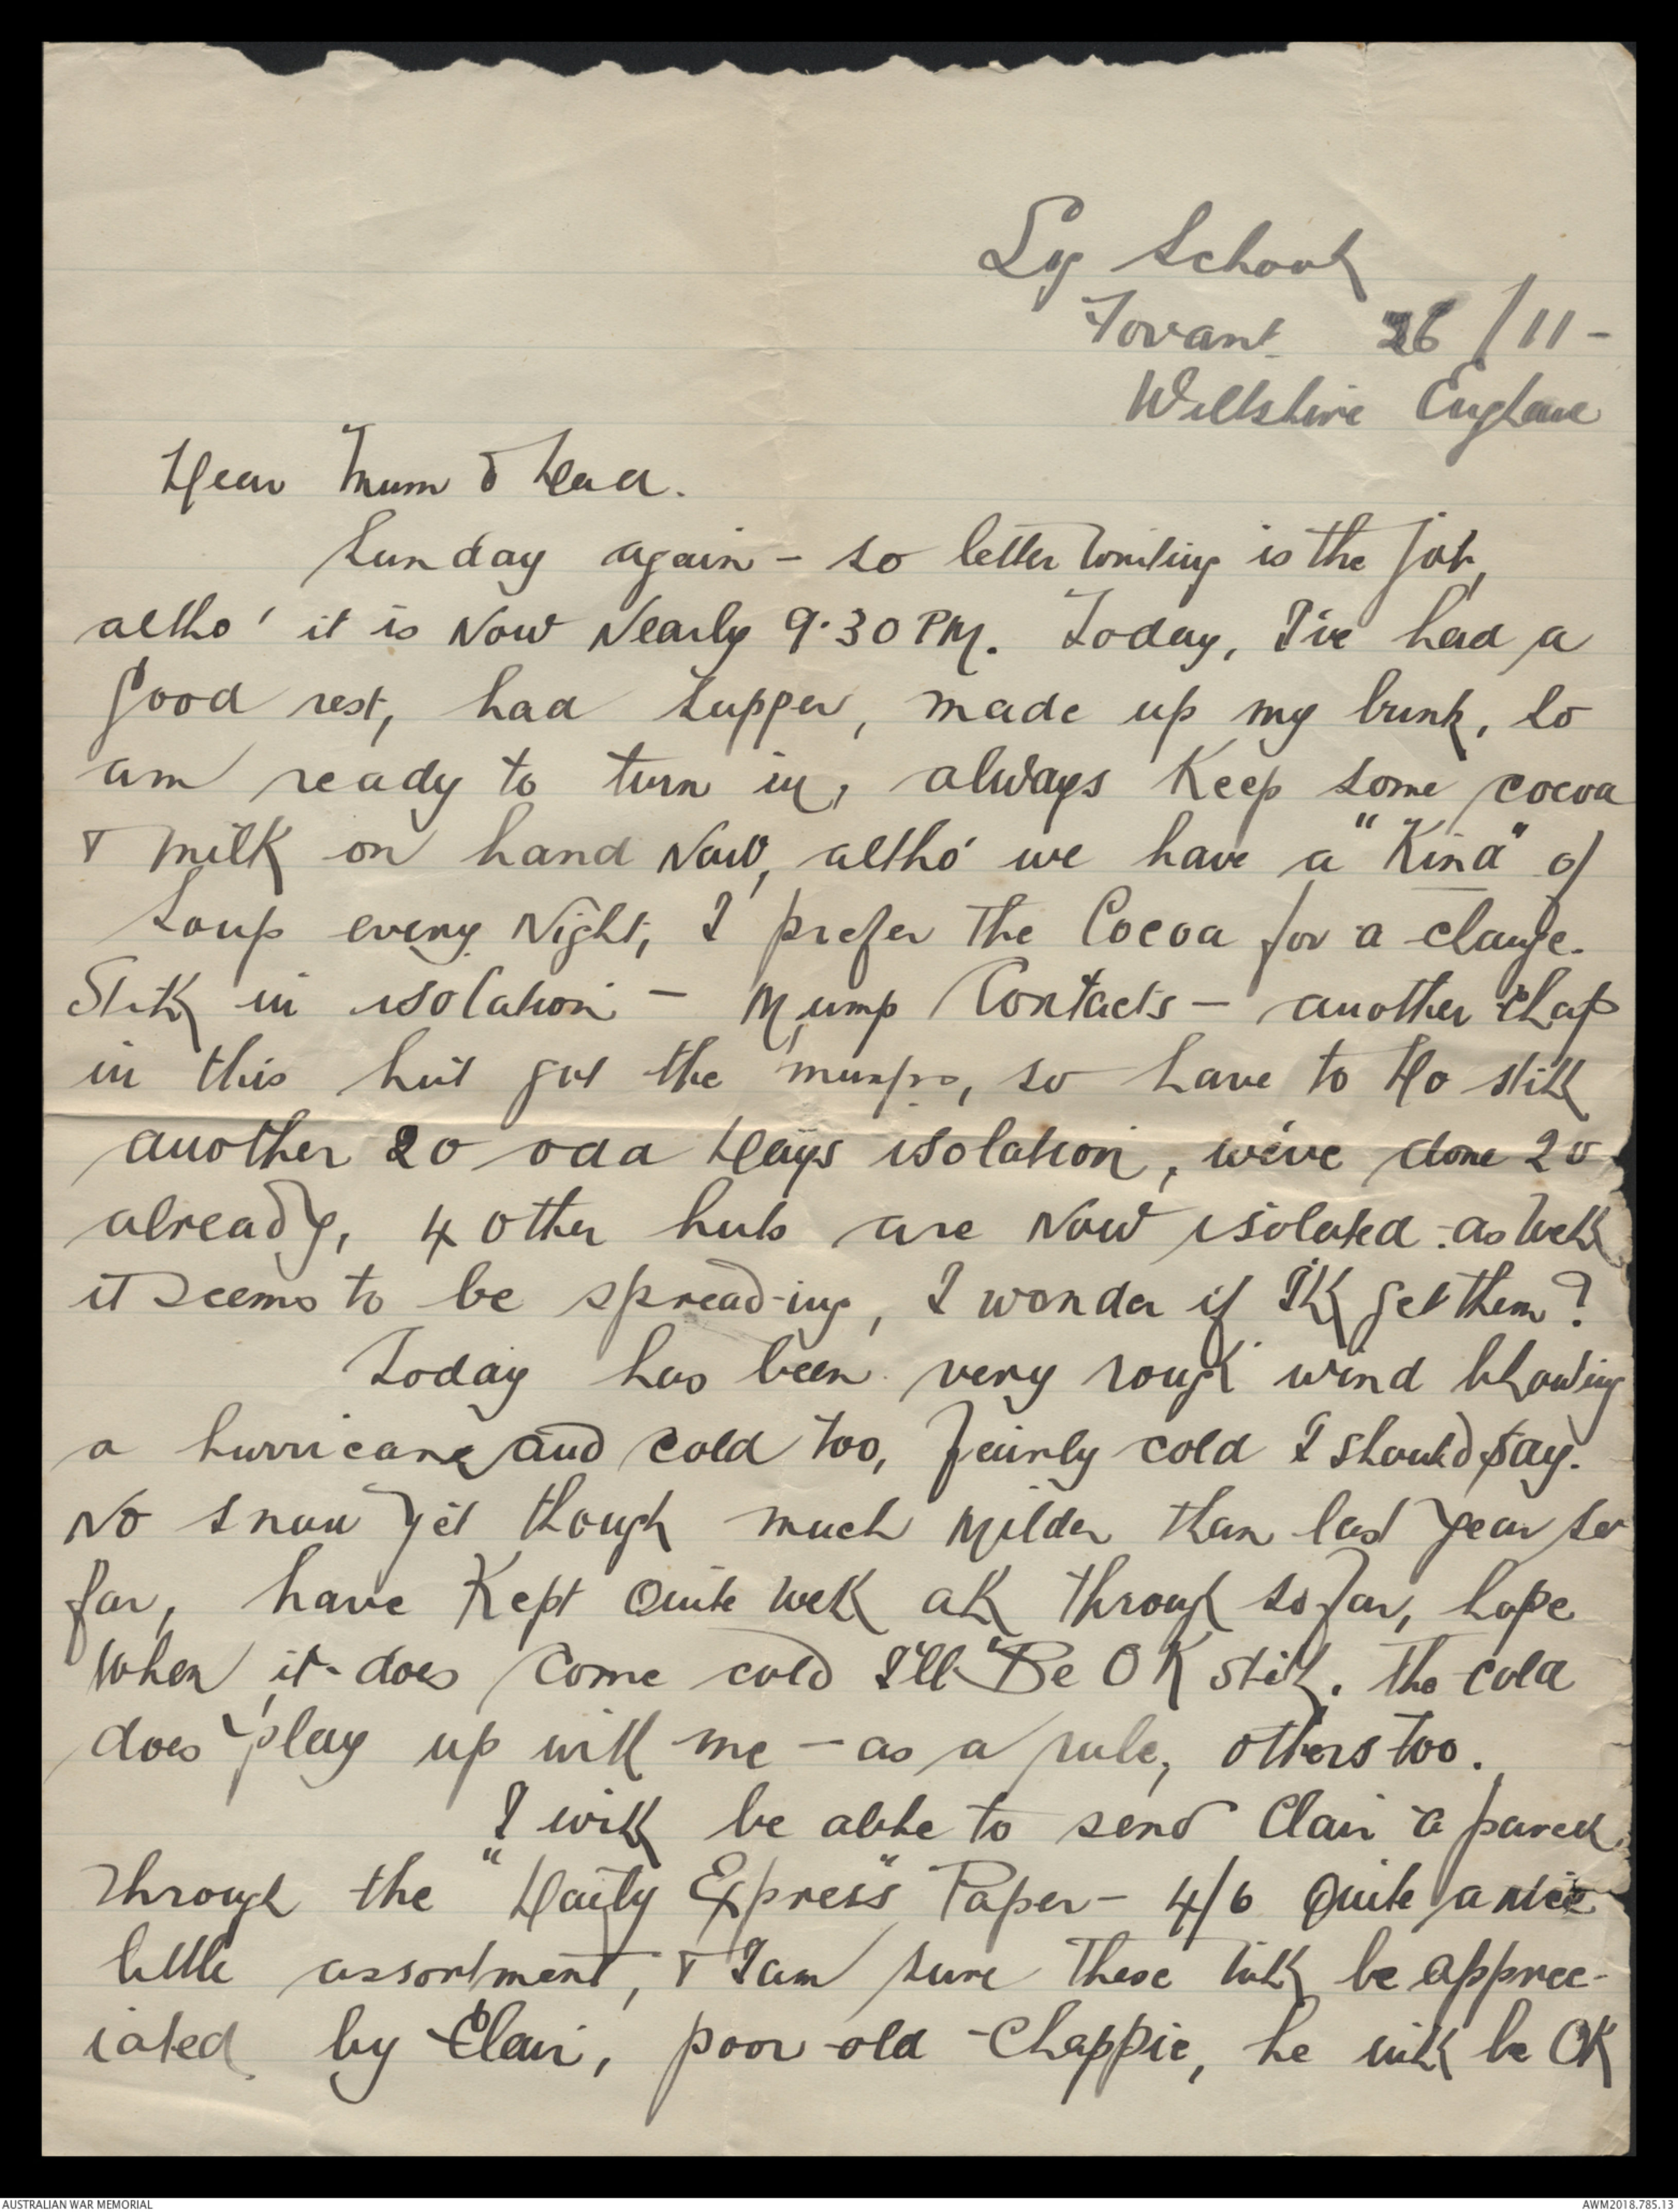 Sig School
Fovant 26/11-
Wiltshire England
Dear Mum & Dad.
Sunday again - so letter writing is the job,
altho' it is Now Nearly 9.30 PM. Today, I've had a
good rest, had supper, made up my bunk, so
am ready to turn in, always Keep some cocoa
& milk on hand Now, altho' we have a "Kind" of
Soup every Night, I prefer the Cocoa for a change.
Still in isolation - Mump Contacts - another chap
in this hut got the mumps, so have to do still
another 20 odd days isolation, we've done 20
already, 4 other huts are Now isolated - as well
it seems to be spread-ing, I wonder if I'll get them?
Today has been very rough wind blowing
a hurricane and cold too, fairly cold I should say.
No snow yet though much Milder than last year so
far, have Kept Quite well all through so far, hope
When it does come cold I'll Be OK still. The cold
does play up with me - as a rule, others too.
I will be able to send Clair a parcel
through the "Daily Express" Paper - 4/6 Quite a nice
little assortment, & I am sure these will be apprec-
iated by Clair, poor old Chappie, he will be OK
AUSTRALIAN WAR MEMORIAL
AWM2018.785.13